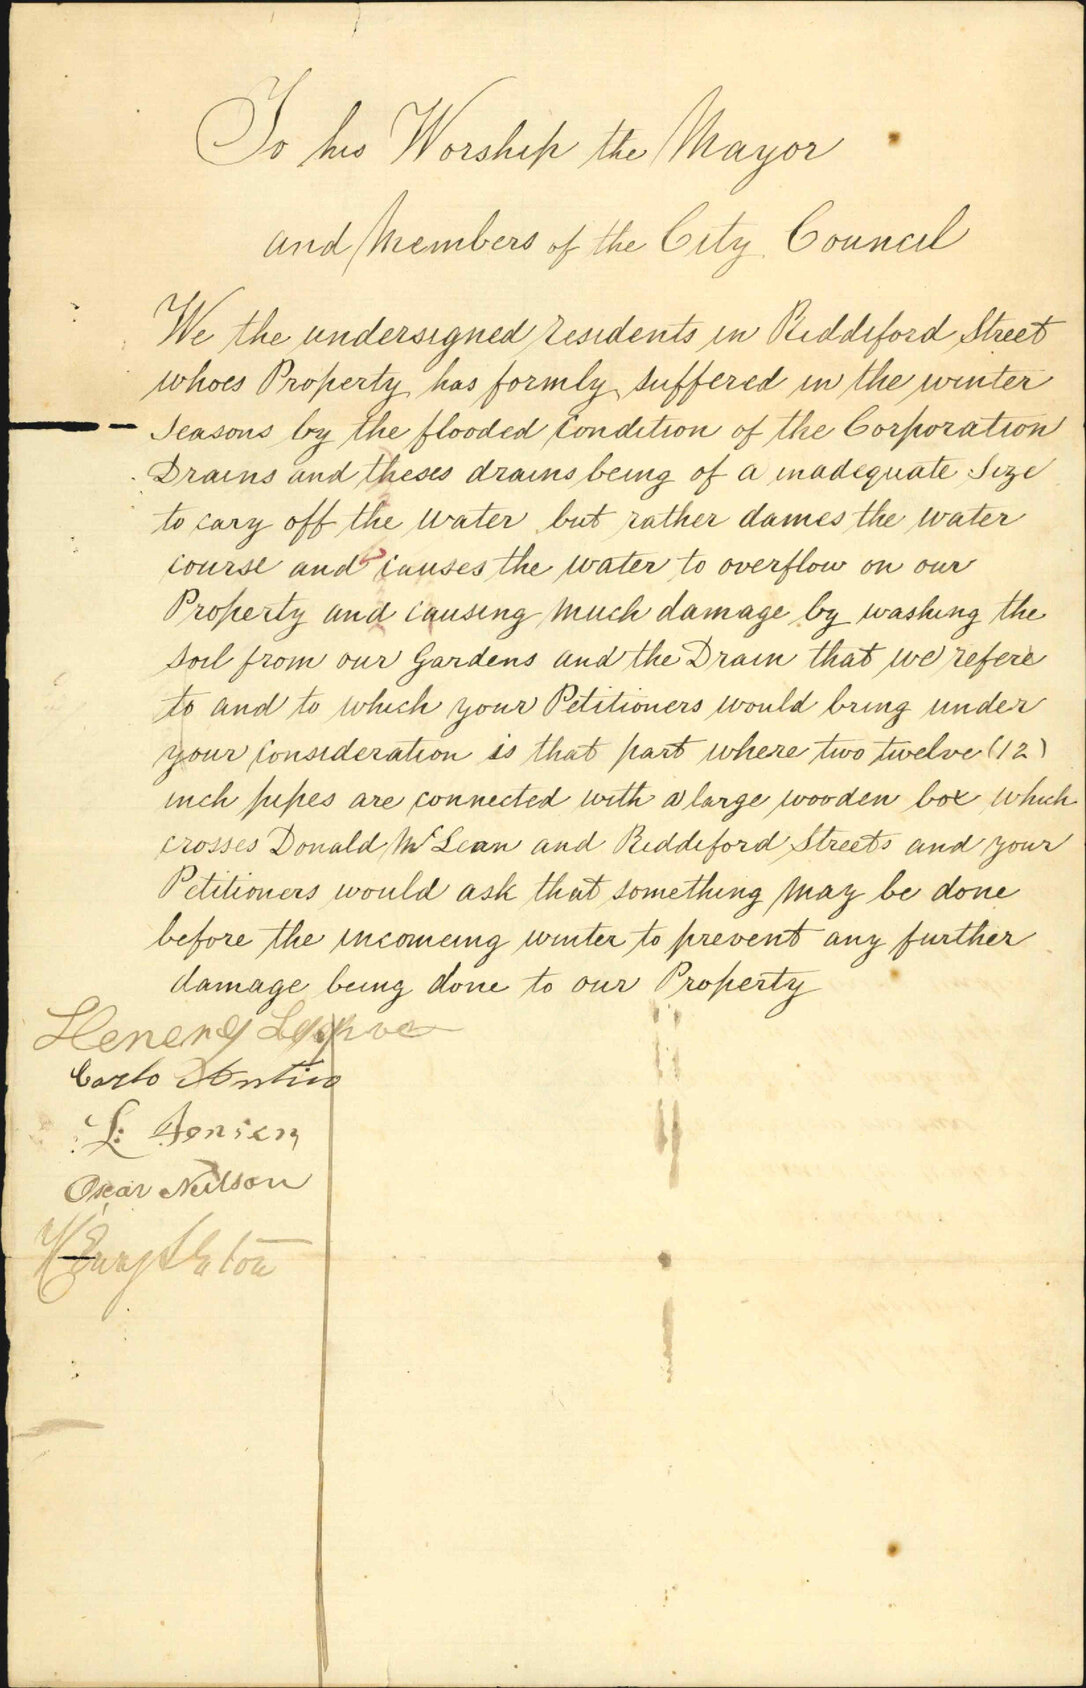 To his Worship the Mayor
and Members of the City Council
We the undersigned residents in Riddiford Street
whoes Property has formly suffered in the winter
Seasons by the flooded Condition of the Corporation
Drains and theses drains being of a inadequate Size
to cary off the water but rather dames the water
course and causes the water to overflow on our
Property and causing much damage by washing the
soil from our Gardens and the Drain that we refere
to and to which your Petitioners would bring under
your consideration is that part where two twelve (12)
inch pipes are connected with a large wooden box which
crosses Donald McLean and Riddiford Streets and your
Petitioners would ask that something may be done
before the incomeing winter to prevent any further
damage being done to our Property
Henery
Carlo
L. Jensen
Oscar Neilson